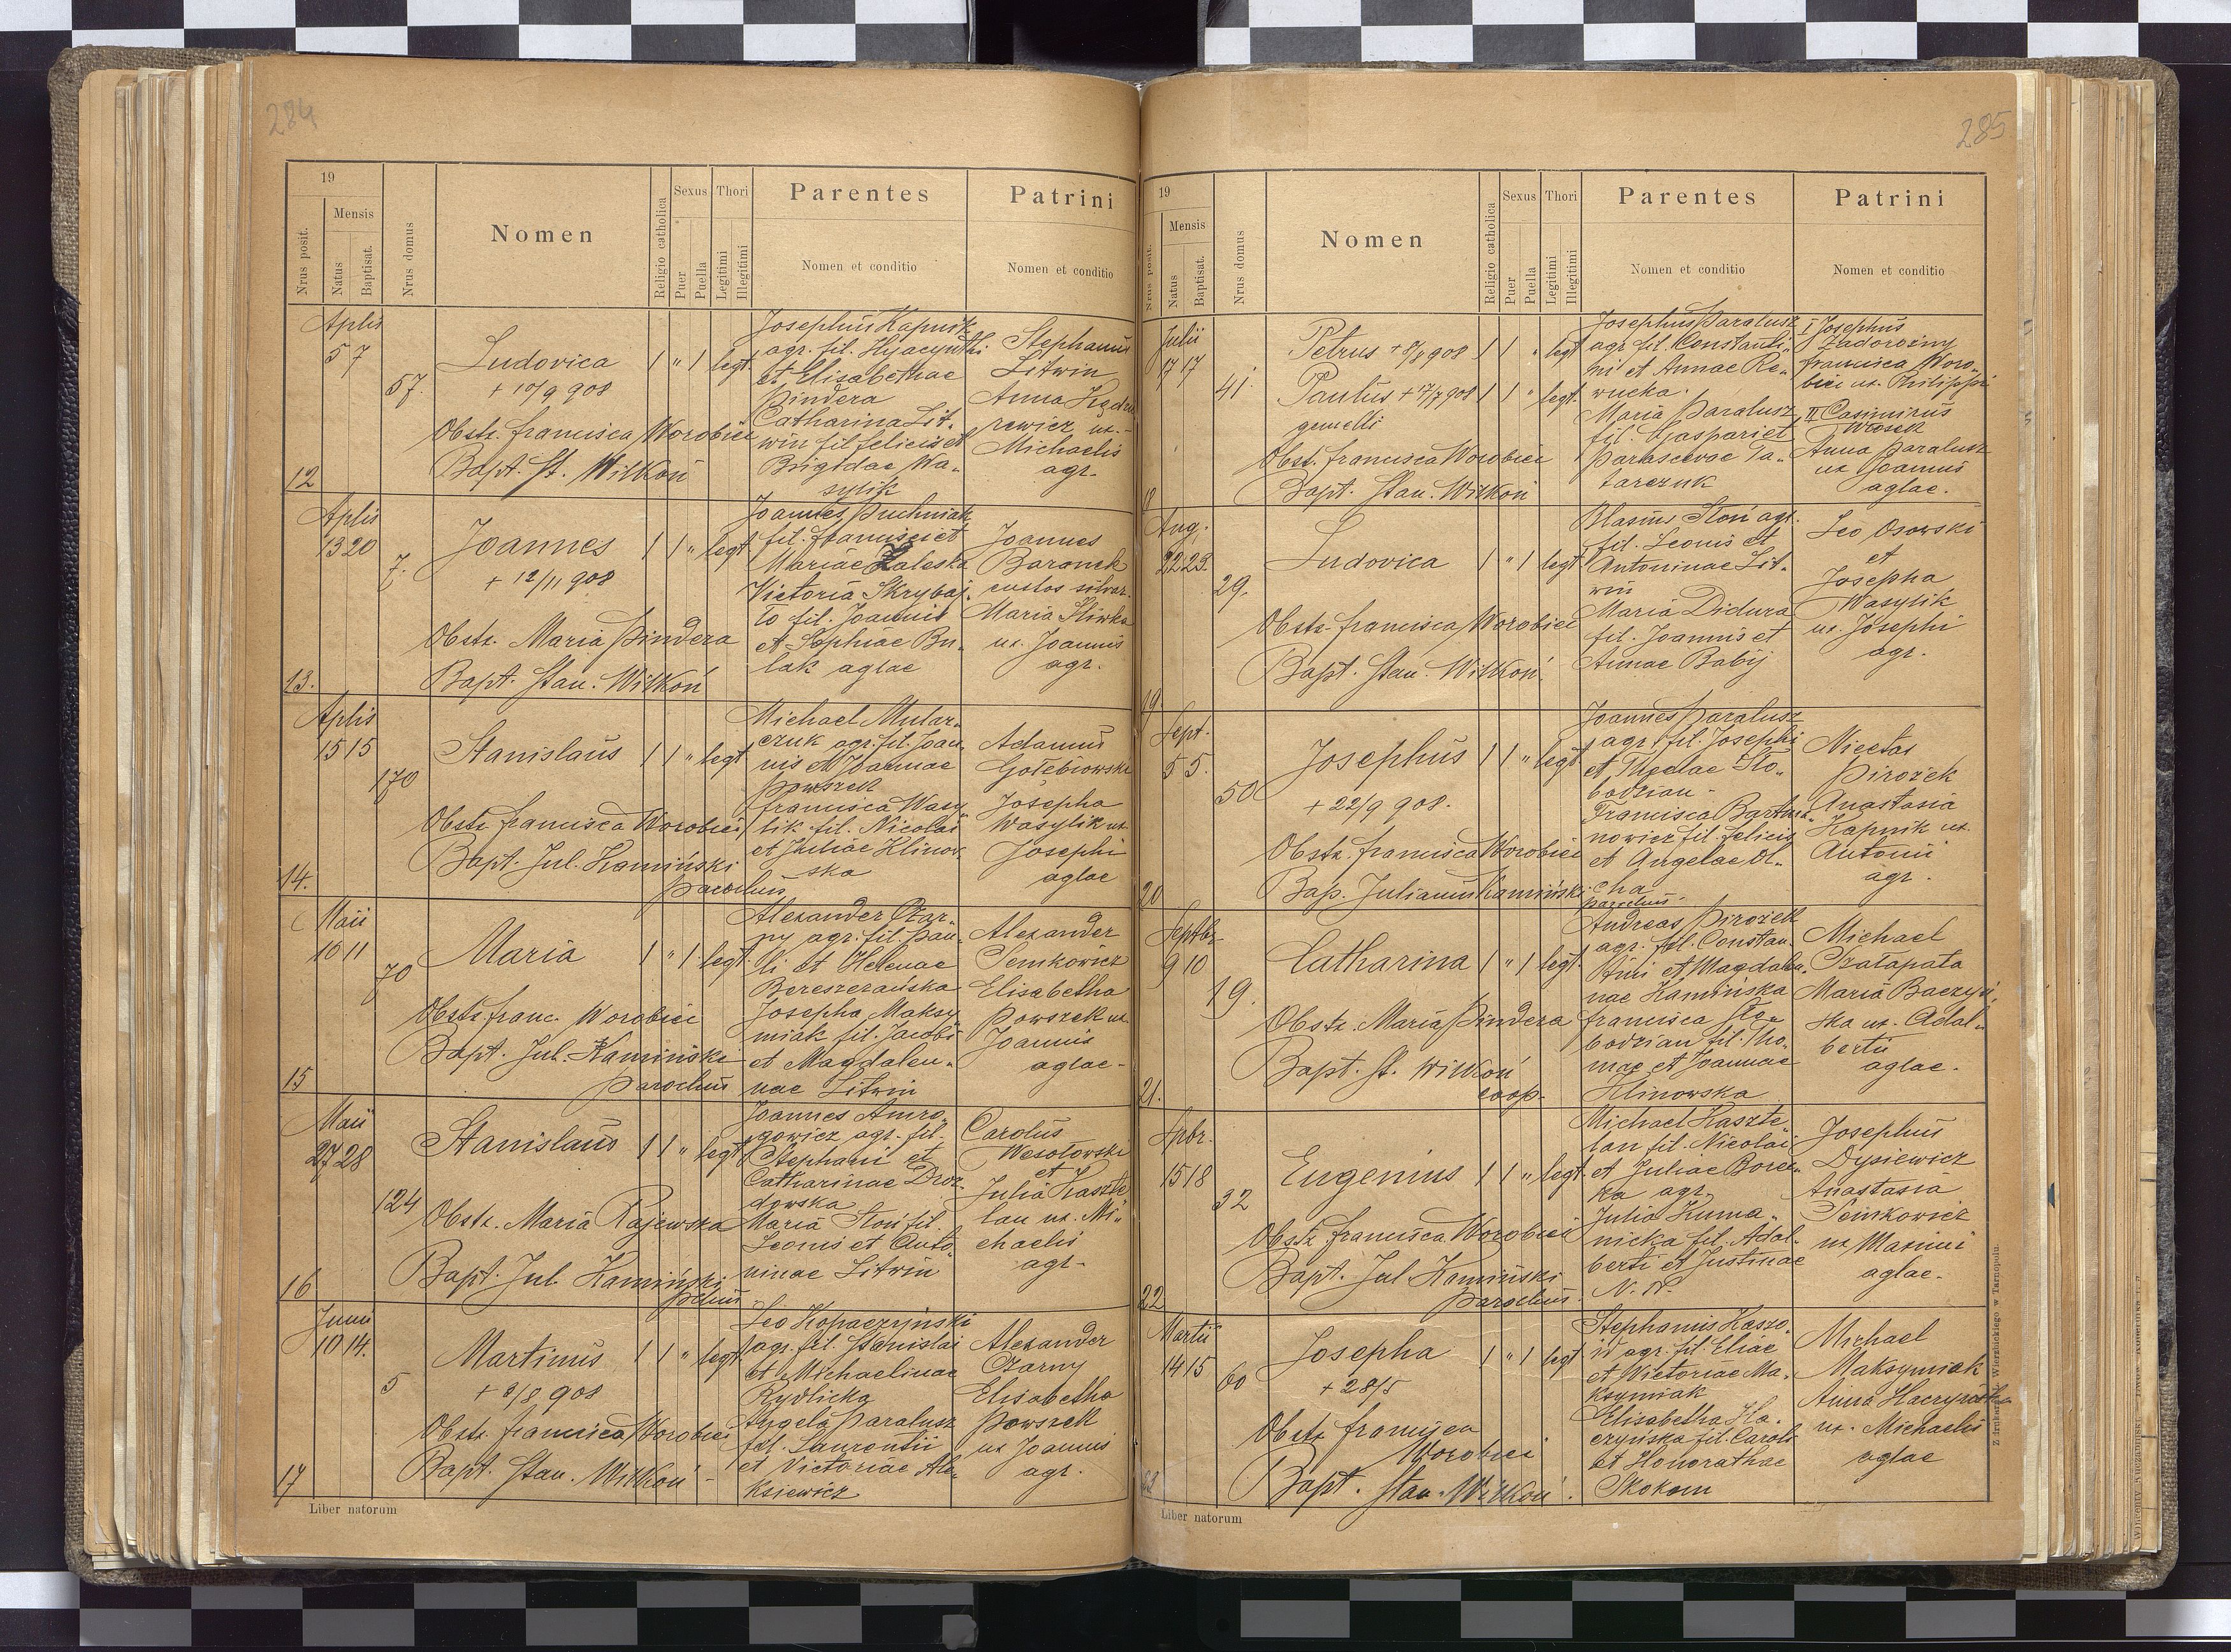 284
19
Nrus posit.
Mensis
Natus
Baptisat.
Nrus domus
Nomen
Religio catholica
Sexus
Puer
Puella
Thori
Legitimi
Illegitimi
Parentes
Nomen et conditio
Patrini
Nomen et conditio
12
Aplis
5 7
57.
Ludovica
+ 10/9 908
Obstz. Francisca Worobiec
Bapt. St. Wilkoń
1 " 1 legt.
Josephus Kapnik
agr. fil. Hyacynthi
et Elisabethae
Pindera
Catharina Lit-
win fil Felicis et
Brigidae Wa-
sylik
Stephanus
Litwin
Anna
rewicz ux.
Michaelis
agr.
13.
Aplis
13 20
7.
Joannes
+ 12/11 908
Obstz. Maria Pindera
Bapt. Stan. Wilkoń
1 1 " legt
Joannes Puchniak
fil. Francisci et
Mariae Zaleska
Victoria Skrybaj-
to fil. Joannis
et Sophiae Bu-
lak aglae
Joannes
Baranek
custos silvar.
Maria Śliwka
ux. Joannis
agr.
14.
Aplis
15 15
170
Stanislaus
Obstz Francisca Worobiec
Bapt. Jul. Kamiński
parochus
1 1 " legt
Michael Mular-
czuk agr. fil. Joan-
nis et Joannae
Powszek
Francisca Wasy-
lik fil. Nicolai
et Juliae Klinow-
ska
Adamus
Gołębiowski
Josepha
Wasylik ux.
Josephi
aglae
15
Maii
10 11
70
Maria
Obstz Franc. Worobiec
Bapt. Jul. Kamiński
parochus
1 " 1 legt.
Alexander Czar-
ny agr. fil. Pau-
li et Helenae
Bereszczańska
Josepha Maksy-
miak fil. Jacobi
et Magdalen-
nae Litwin
Alexander
Senkowicz
Elisabetha
Powszek ux.
Joannis
aglae-
16
Maii
27 28
124
Stanislaus
Obstz. Maria Rajewska
Bapt. Jul. Kamiński
pchus
1 1 " legt
Joannes Amro-
gowicz agr. fil.
Stephani et
Catharinae Droz-
dowska
Maria Słoń fil.
Leonis et Anto-
ninae Litwin
Carolus
Wesołowski
et
Julia Kaszte-
lan ux. Mi-
chaelis
agr-
17
Junii
10 14.
5
Martinus
+ 8/8 908
Obstz. Francisca Worobiec
Bapt. Stan. Wilkoń -
1 1 " legt
Leo Kopaczyński
agr. fil. Stanislai
et Michaelinae
Rydlicka
Angela Paralusz
fil. Laurentii
et Victoriae Ale-
ksiewicz
Alexander
Czarny
Elisabetha
Powszek
ux Joannis
agr.
Liber natorum
285
19
Nrus posit.
Mensis
Natus
Baptisat.
Nrus domus
Nomen
Religio catholica
Sexus
Puer
Puella
Thori
Legitimi
Illegitimi
Parentes
Nomen et conditio
Patrini
Nomen et conditio
18
Julii
17 17
41.
Petrus + 8/8 908
Paulus + 17/7 908
gemelli
Obst. Francisca Worobiec
Bapt. Stan. Wilkoń
1 1 " legt
1 1 " legt.
Josephus Paralusz
agr fil. Constanti-
ni et Annae Re-
wucka.
Maria Paralusz
fil. Gaspari et
Parascevae Ta-
tarczuk
I Josephus
Zadorożny
Francisca Woro-
biec ux. Philippi
II Casimirus
Włosek
Anna Paralusz
ux Joannis
aglae.
19
Aug.
22 23.
29.
Ludovica
Obstz. Francisca Worobiec
Bapt. Stan. Wilkoń.
1 " 1 legt
Blasius Słoń agr.
fil. Leonis et
Antoninae Lit-
win
Maria Didura
fil. Joannis et
Annae Babij
Leo Osowski
et
Josepha
Wasylik
ux. Josephi
agr.
20
Sept.
5 5.
50
Josephus
+ 22/9 908.
Obstz. Francisca Worobiec
Bap. Julianus Kamiński
parochus.
1 1 " legt
Joannes Paralusz
agr. fil. Josephi
et Theclae Sło-
bodzian-
Francisca Bartma-
nowicz fil. Felicis
et Angelae Ol-
cha
Nicetas
Pirożek
Anastasia
Kapnik ux.
Antonii
agr.
21.
Septbr.
9 10
19.
Catharina
Obstz. Maria Pindera
Bapt. St. Wilkoń
coop.
1 " 1 legt.
Andreas Pirożek
agr. fil. Constan-
tini et Magdale-
nae Kamińska
Francisca Sło-
bodzian fil. Tho-
mae et Joannae
Klinowska
Michael
Czałapata
Maria Baczyń-
ska ux. Adal-
berti
aglae.
22
Spbr.
15 18
32
Eugenius
Obstz. Francisca Worobiec
Bapt. Jul. Kamiński
parochus.
1 1 " legt.
Michael Kaszte-
lan fil. Nicolai
et Juliae Borec-
ka agr.
Julia Kuma-
nicka fil. Adal-
berti et Justinae
N. N.
Josephus
Dysiewicz
Anastasia
Senkowicz
ux Maximi
aglae.
Martii
14 15
60
Josepha
+ 28/5
Obstz Francisca
Worobiec
Bapt. Stan. Wilkoń.
1 " 1 legt
Stephanus Kaszo-
id agr. fil. Eliae
et Victoriae Ma-
ksymiak
Elisabetha Ha-
czyńska fil. Caroli
et Honorathae
Skokom
Michael
Maksymiak
Anna Haczyńska
ux. Michaelis
aglae
Liber natorum
Z drukarni Wierzbickiego w Tarnopolu.